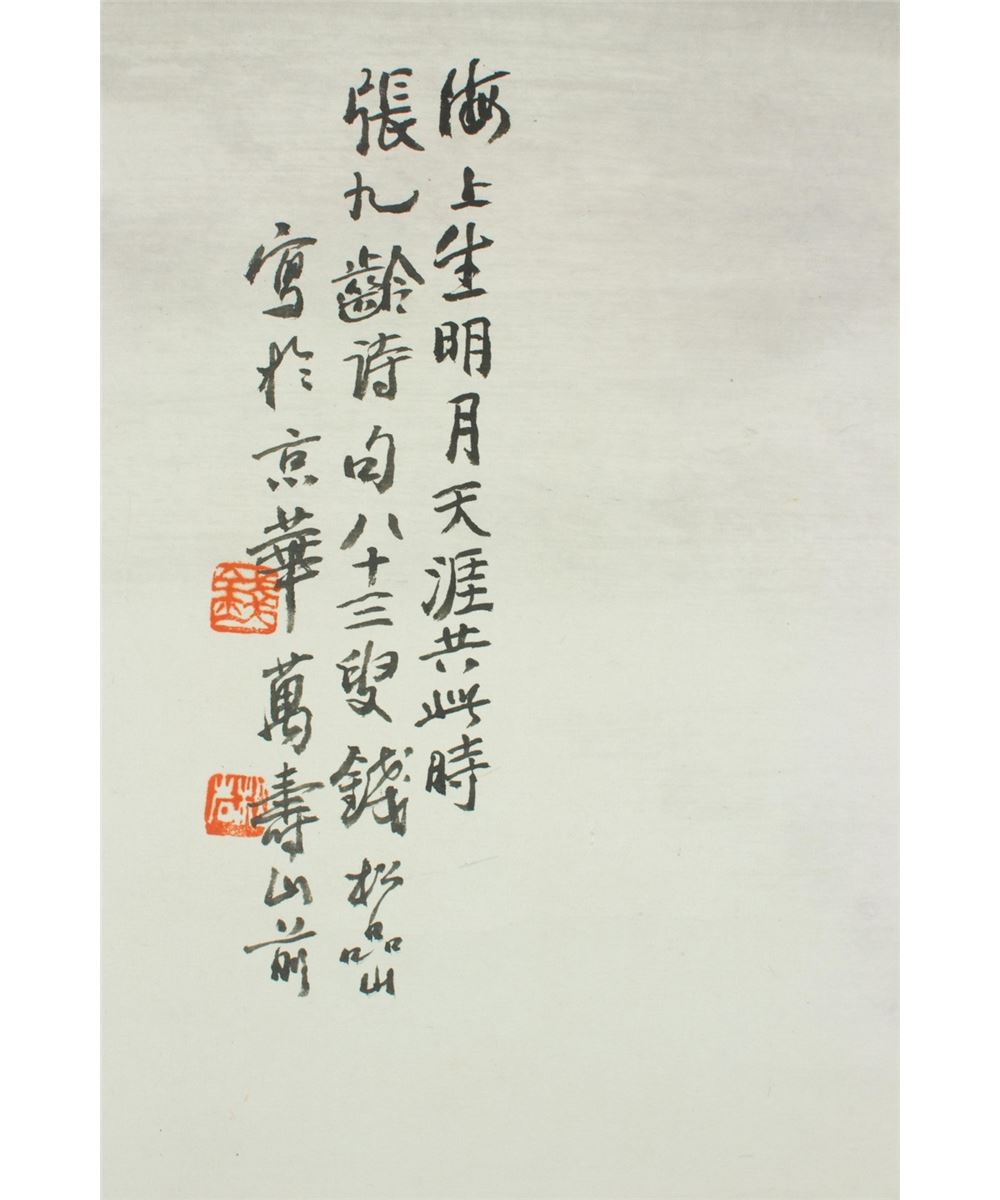 海上生明月天涯共此時
張九齡诗句八十三叟錢松嵒
寫於京華萬壽山前
錢
松嵒